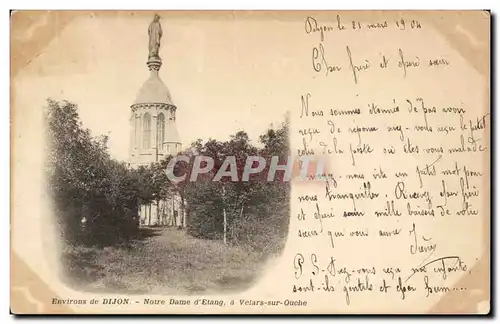 Dijon le 21 mars 1904
Cher frère et chère sœur
Nous sommes étonnés de pas avoir
reçu de réponse avez-vous reçu le petit
colis de la poste ou êtes vous malade
envoyez nous vite un petit mot pour
nous tranquilliser. Recevez cher frère
et chère sœur mille baisers de votre
sœur qui vous aime
P.S. Avez-vous reçu les enfants
sont-ils gentils et
CPARAMA
Environs de DIJON. - Notre Dame d'Etang, à Velars-sur-Ouche